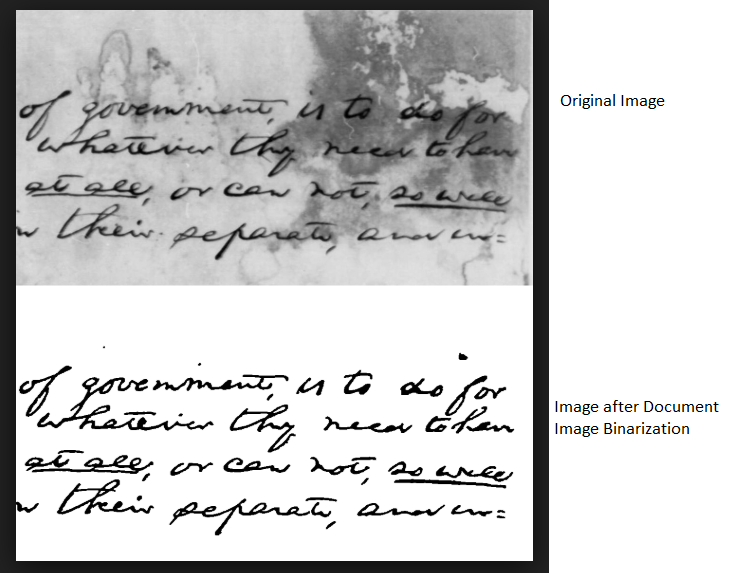 of government, is to do for
whatever they need to have
at all, or can not, so well
Original Image
in their separate, and in=
of government, is to do for
whatever they need to have
at all, or can not, so well
in their separate, and in=
Image after Document
Image Binarization